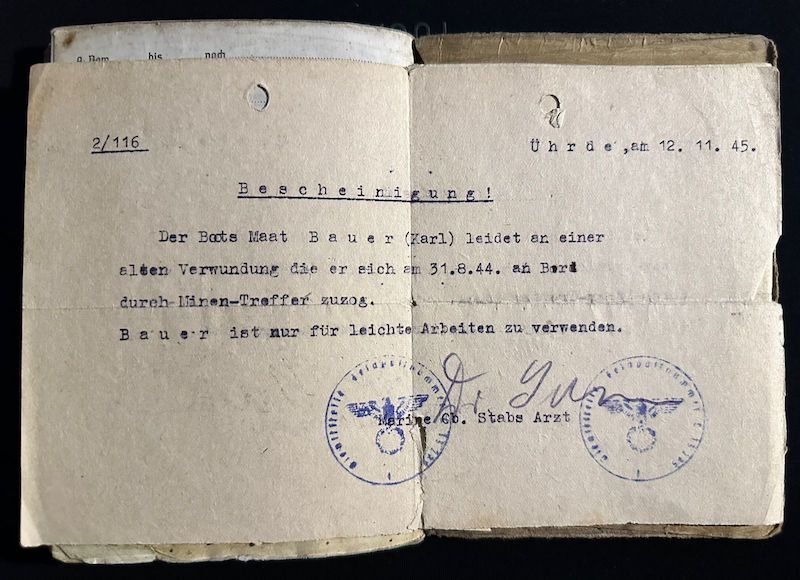 9. Vom bis nach
2/116
Ührde, am 12. 11. 45.
Bescheinigung!
Der Boots Maat Bauer (Karl) leidet an einer
alten Verwundung die er sich am 31.8.44. an Bord
durch Minen-Treffer zuzog.
Bauer ist nur für leichte Arbeiten zu verwenden.
Dr
Marine Ob. Stabs Arzt
Dienststelle Feldpostnummer
Dienststelle Feldpostnummer